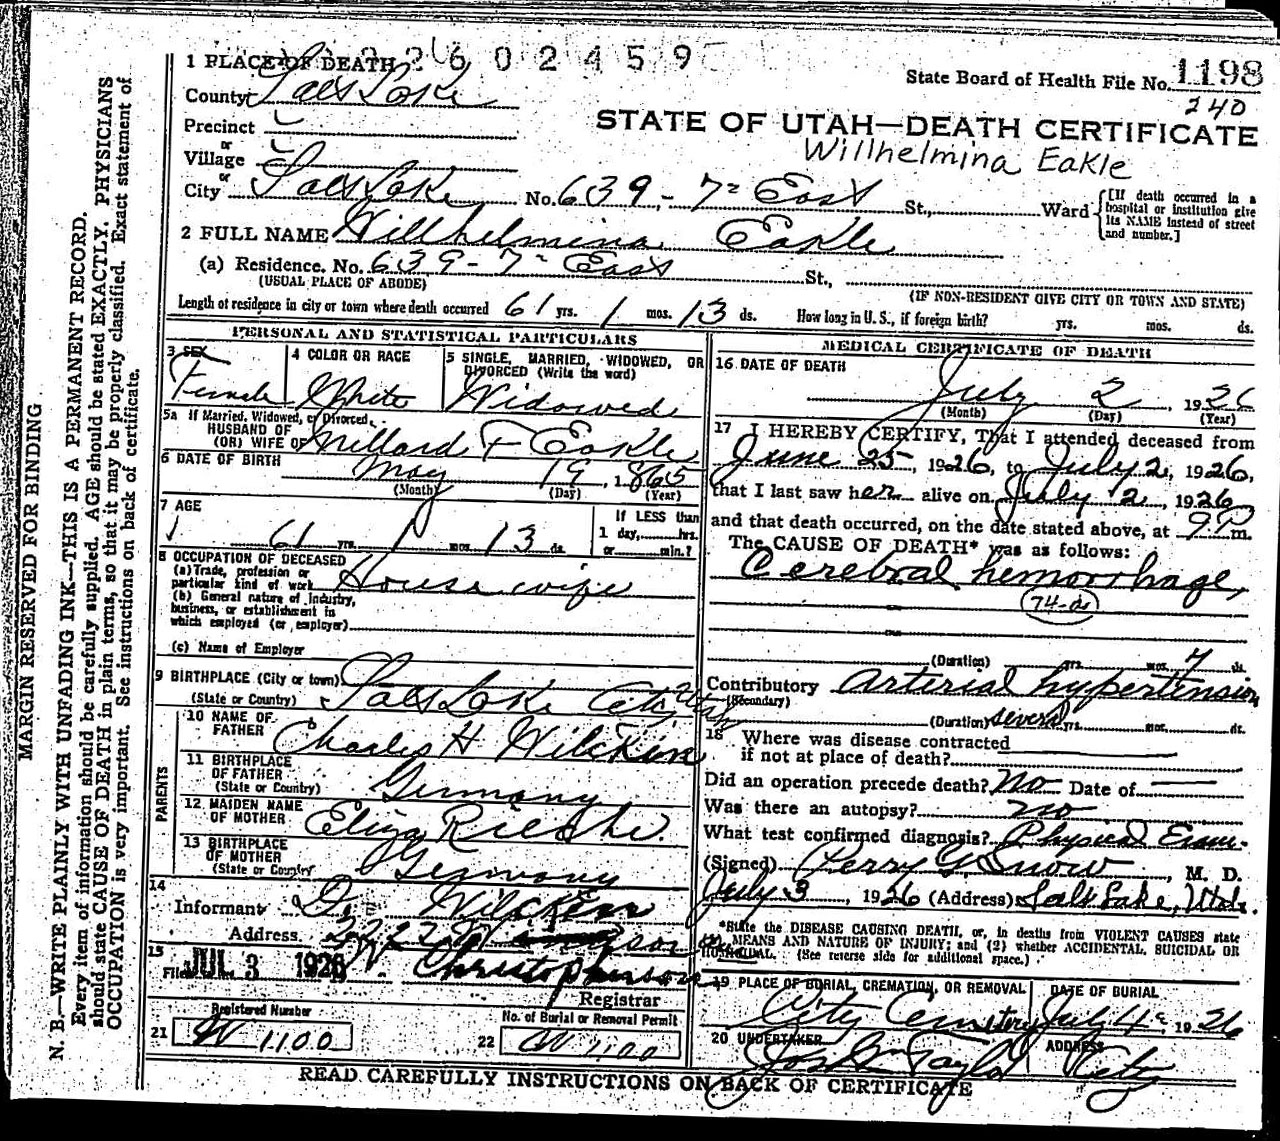 2602459
1 PLACE OF DEATH
State Board of Health File No. 1198
240
County Salt Lake
STATE OF UTAH—DEATH CERTIFICATE
Precinct
Willhelmina Eakle
or
Village
or
City Salt Lake No. 639 - 7th East St., Ward
[If death occurred in a hospital or institution give its NAME instead of street and number.]
2 FULL NAME Willhelmina Eakle
(a) Residence. No. 639 - 7th East St.,
(USUAL PLACE OF ABODE)
(IF NON-RESIDENT GIVE CITY OR TOWN AND STATE)
Length of residence in city or town where death occurred 61 yrs. 1 mos. 13 ds. How long in U. S., if foreign birth? yrs. mos. ds.
PERSONAL AND STATISTICAL PARTICULARS
3 SEX
Female
4 COLOR OR RACE
White
5 SINGLE, MARRIED, WIDOWED, OR DIVORCED (Write the word)
Widowed
5a If Married, Widowed, or Divorced,
HUSBAND OF
(OR) WIFE OF Millard F Eakle
6 DATE OF BIRTH May 19, 1865
(Month) (Day) (Year)
7 AGE
61 yrs. 1 mos. 13 ds.
If LESS than
1 day, hrs.
or min.?
8 OCCUPATION OF DECEASED
(a) Trade, profession or
particular kind of work House wife
(b) General nature of industry,
business, or establishment in
which employed (or employer)
(c) Name of Employer
9 BIRTHPLACE (City or town)
(State or Country) Salt Lake City, Utah
PARENTS
10 NAME OF
FATHER Charles H Wilcken
11 BIRTHPLACE
OF FATHER
(State or Country) Germany
12 MAIDEN NAME
OF MOTHER Eliza Rieshe
13 BIRTHPLACE
OF MOTHER
(State or Country) Germany
14
Informant Wilcken
Address
15
Filed JUL 3 1926 Christopherson
Registrar
Registered Number
21 W 1100
No. of Burial or Removal Permit
22 W 1100
MEDICAL CERTIFICATE OF DEATH
16 DATE OF DEATH
July 2, 1926
(Month) (Day) (Year)
17 I HEREBY CERTIFY, That I attended deceased from
June 25, 1926, to July 2, 1926,
that I last saw her alive on July 2, 1926
and that death occurred, on the date stated above, at 9 P m.
The CAUSE OF DEATH* was as follows:
Cerebral hemorrhage,
74-a
(Duration) yrs. mos. 7 ds.
Contributory Arterial hypertension
(Secondary)
(Duration) several yrs. mos. ds.
18 Where was disease contracted
if not at place of death?
Did an operation precede death? No Date of
Was there an autopsy? no
What test confirmed diagnosis? Physical Exam.
(Signed) Perry G. Snow, M. D.
July 3, 1926 (Address) Salt Lake, Utah.
*State the DISEASE CAUSING DEATH, or, in deaths from VIOLENT CAUSES state
MEANS AND NATURE OF INJURY; and (2) whether ACCIDENTAL, SUICIDAL OR
HOMICIDAL. (See reverse side for additional space.)
19 PLACE OF BURIAL, CREMATION, OR REMOVAL
City Cemetery
DATE OF BURIAL
July 4, 1926
20 UNDERTAKER
Jos Wm Taylor
ADDRESS
City
READ CAREFULLY INSTRUCTIONS ON BACK OF CERTIFICATE
MARGIN RESERVED FOR BINDING
N. B.—WRITE PLAINLY WITH UNFADING INK—THIS IS A PERMANENT RECORD.
Every item of information should be carefully supplied. AGE should be stated EXACTLY. PHYSICIANS
should state CAUSE OF DEATH in plain terms, so that it may be properly classified. Exact statement of
OCCUPATION is very important. See instructions on back of certificate.